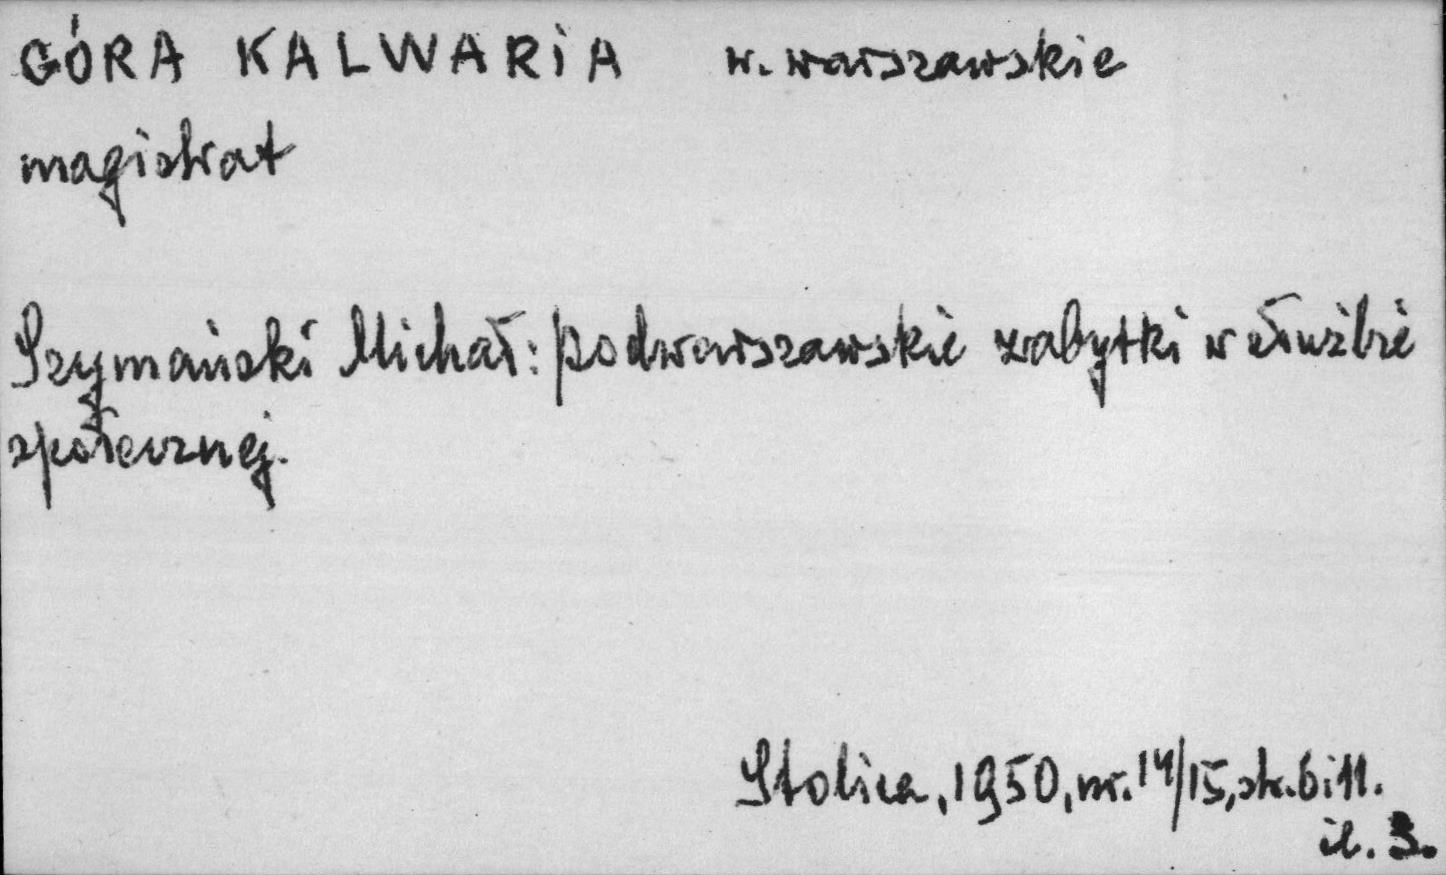 GÓRA KALWARIA w. warszawskie
magistrat
Szymański Michał: podwarszawskie zabytki w służbie
społecznej.
Stolica, 1950, nr. 14/15, str. 6 i 11.
il. 3.